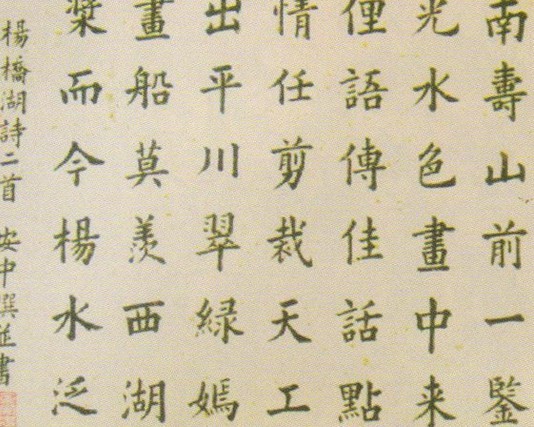 南壽山前一鑒
光水色畫中来
俚語傳佳話點
情任剪裁天工
出平川翠緑嫣
畫船莫羨西湖
槳而今楊水泛
楊橋湖詩二首 安中撰並書